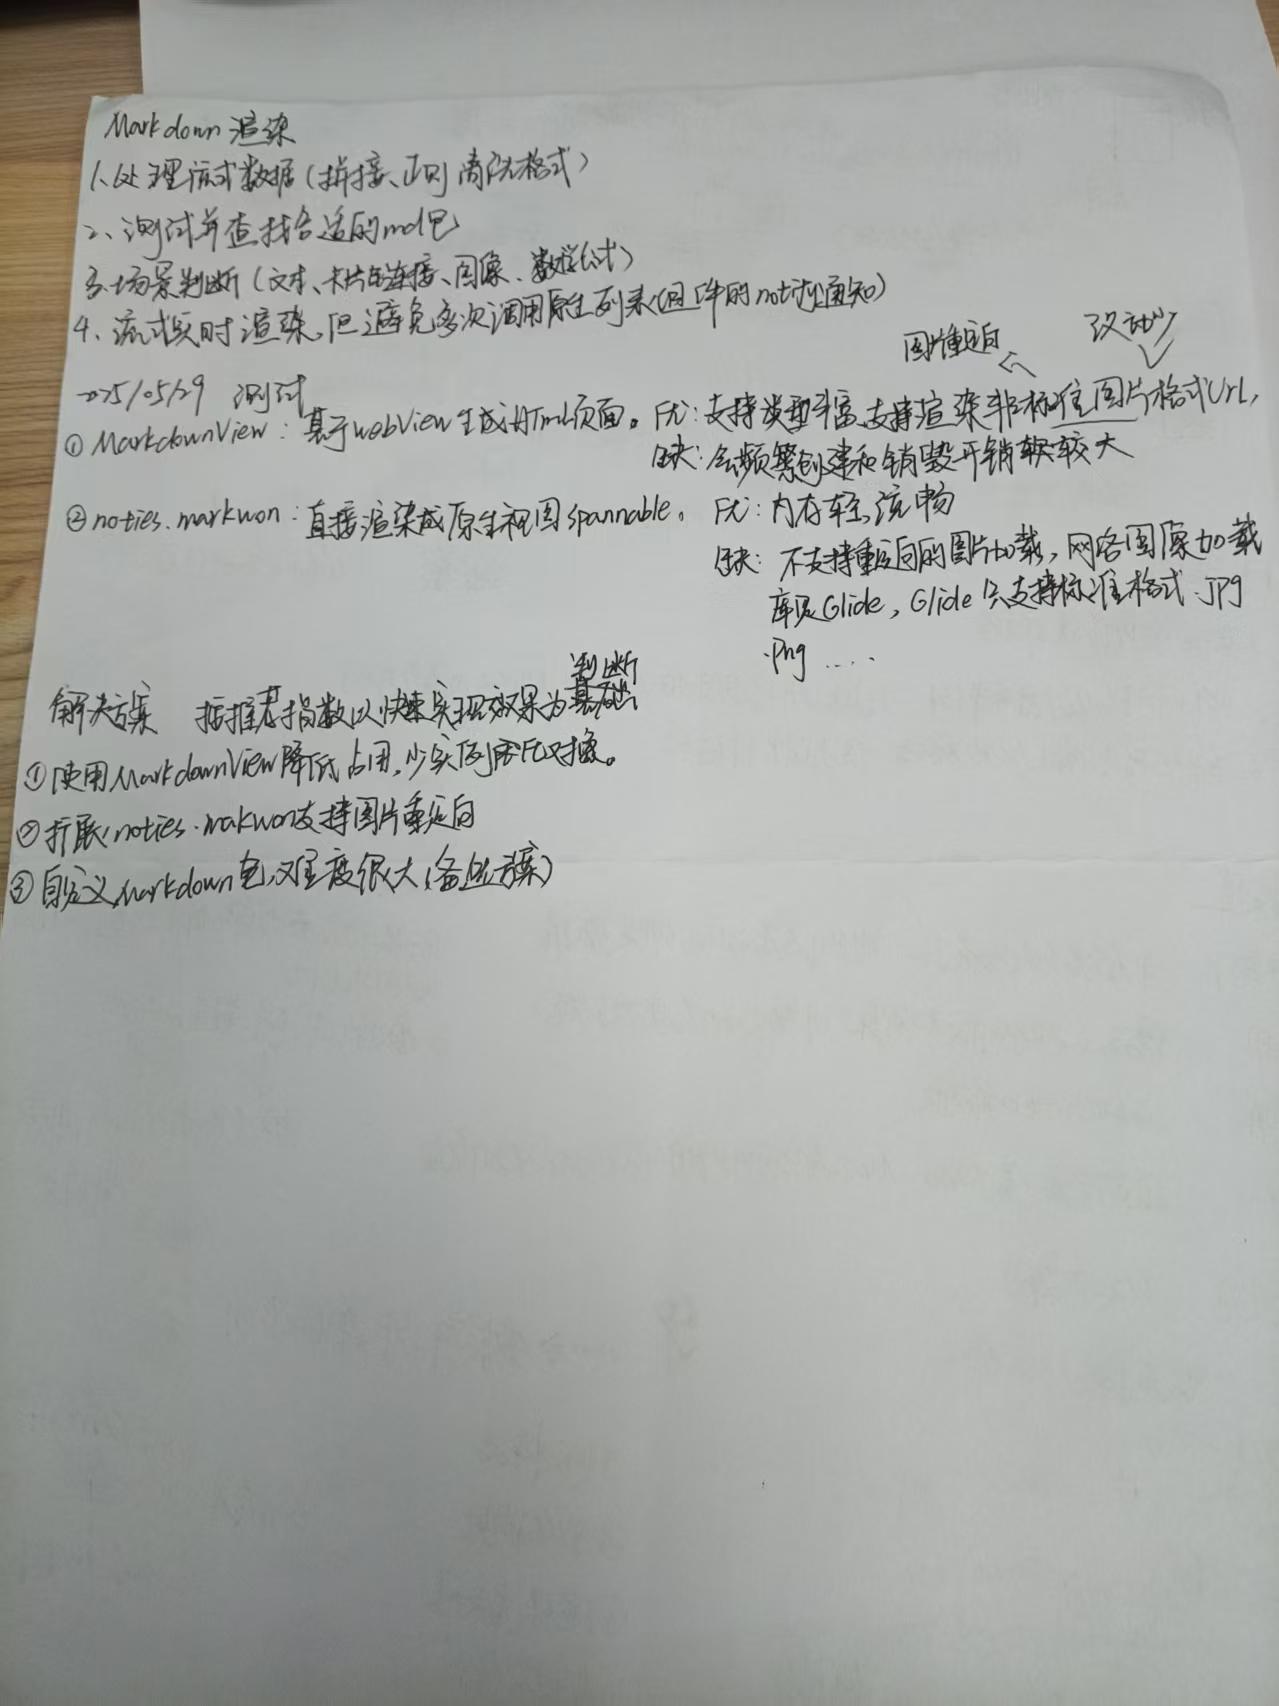 Markdown 渲染
1、处理流式数据(拼接、正则 清洗格式)
2、测试并查找合适的md包
3、场景判断(文本、卡片的连接、图像、数学公式)
4、流式实时渲染,但避免多次调用原生列表(组件的notify通知)
图片重定向 改动少
2025/05/29 测试
① MarkdownView:基于webView生成HTml页面。优:支持类型丰富,支持渲染非标准图片格式Url,
缺:会频繁创建和销毁开销较大
② noties.markwon:直接渲染成原生视图spannable。优:内存轻,流畅
缺:不支持重定向的图片加载,网络图像加载
库是Glide,Glide只支持标准格式.jpg
.png ……
判断
解决方案 按推荐指数以快速实现效果为基础
①使用MarkdownView降低占用,少实例,对象。
②扩展noties.makwon支持图片重定向
③自定义Markdown包,难度很大(备选方案)